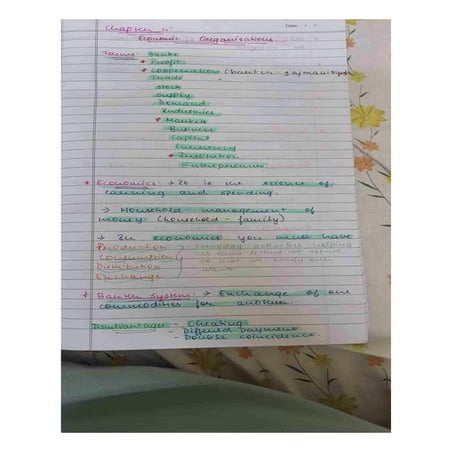 Chapter 11:
Economic Organisations.
Date: / /
Terms: Banks
* Profit
* Cooperation (barter, jajmani system
Trade
Stock
Supply
Demand
Industries
* Market
Business
Capital
Currency
* Institution
Entrepreneur
* Economics: → It is the science of
earning and spending.
→ Household management of
money (household - family)
→ In economics you must have
Production : Everyday activities helping
Consumption
Distribution
Exchange
* Barter System: → Exchange of one
commodities for another.
Disadvantages - Cheating
- Differed payment
- Double coincidence.